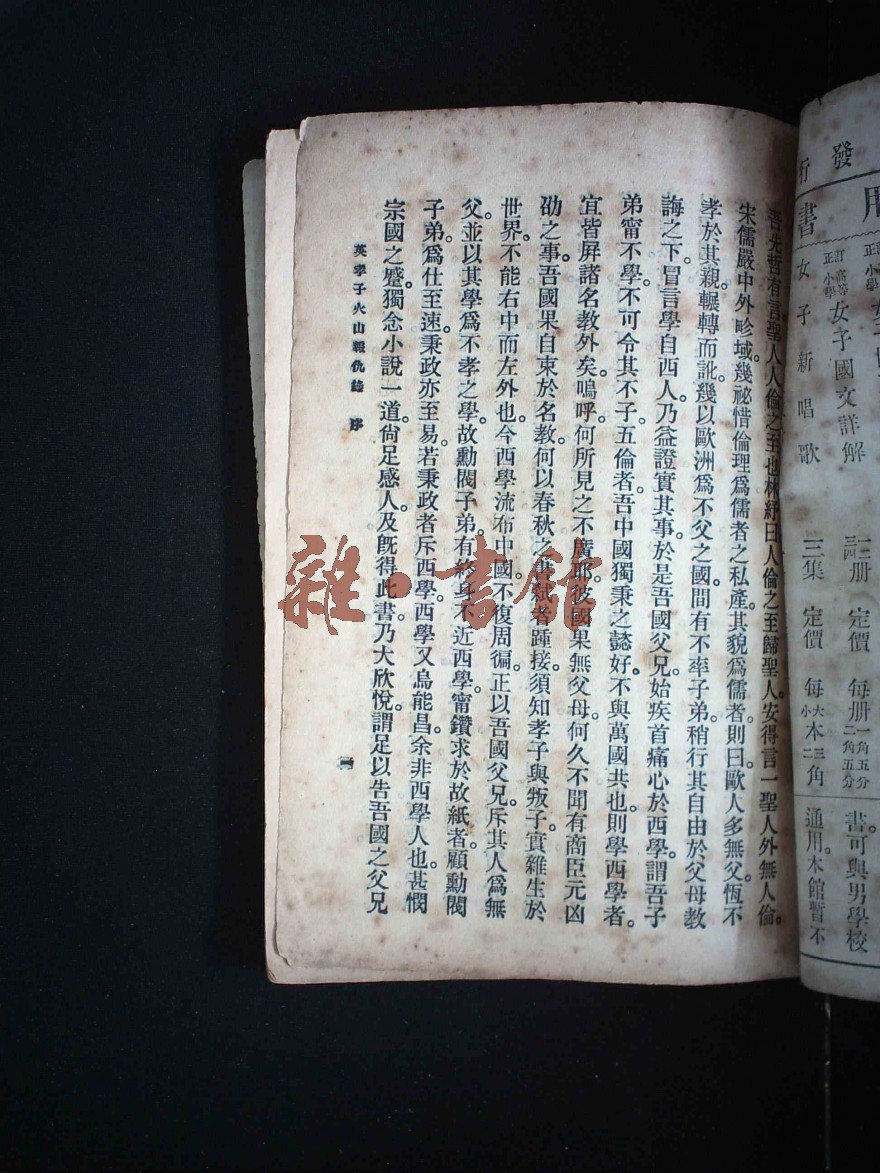 發行
用書
訂正高等小學女子國文詳解
一二三四册 定價 每册一角五分二角五分
女子新唱歌
三集 定價 每大本三角小二
書可與男學校
通用本館暫不
吾先哲有言聖人人倫之至也林紓曰人倫之至歸聖人安得言一聖人外無人倫。
宋儒嚴中外畛域。幾祕惜倫理爲儒者之私產。其貌爲儒者。則曰歐人多無父恆不
孝於其親。輾轉而訛。幾以歐洲爲不父之國。間有不率子弟。稍行其自由於父母教
誨之下。冒言學自西人。乃益證實其事。於是吾國父兄。始疾首痛心於西學。謂吾子
弟甯不學。不可令其不子。五倫者。吾中國獨秉之懿好。不與萬國共也。則學西學者。
宜皆屏諸名教外矣。嗚呼。何所見之不廣耶。彼國果無父母。何久不聞有商臣元凶
劭之事。吾國果自束於名教。何以春秋之書弒者踵接。須知孝子與叛子。實雜生於
世界。不能右中而左外也。今西學流布中國。不復周徧。正以吾國父兄。斥其人爲無
父。並以其學爲不孝之學。故勳閥子弟。有終身不近西學。甯鑽求於故紙者。顧勳閥
子弟。爲仕至速。秉政亦至易。若秉政者斥西學。西學又烏能昌。余非西學人也。甚憫
宗國之蹙。獨念小說一道。尙足感人。及旣得此書。乃大欣悅。謂足以告吾國之父兄
英孝子火山報仇錄 序
雜·書館